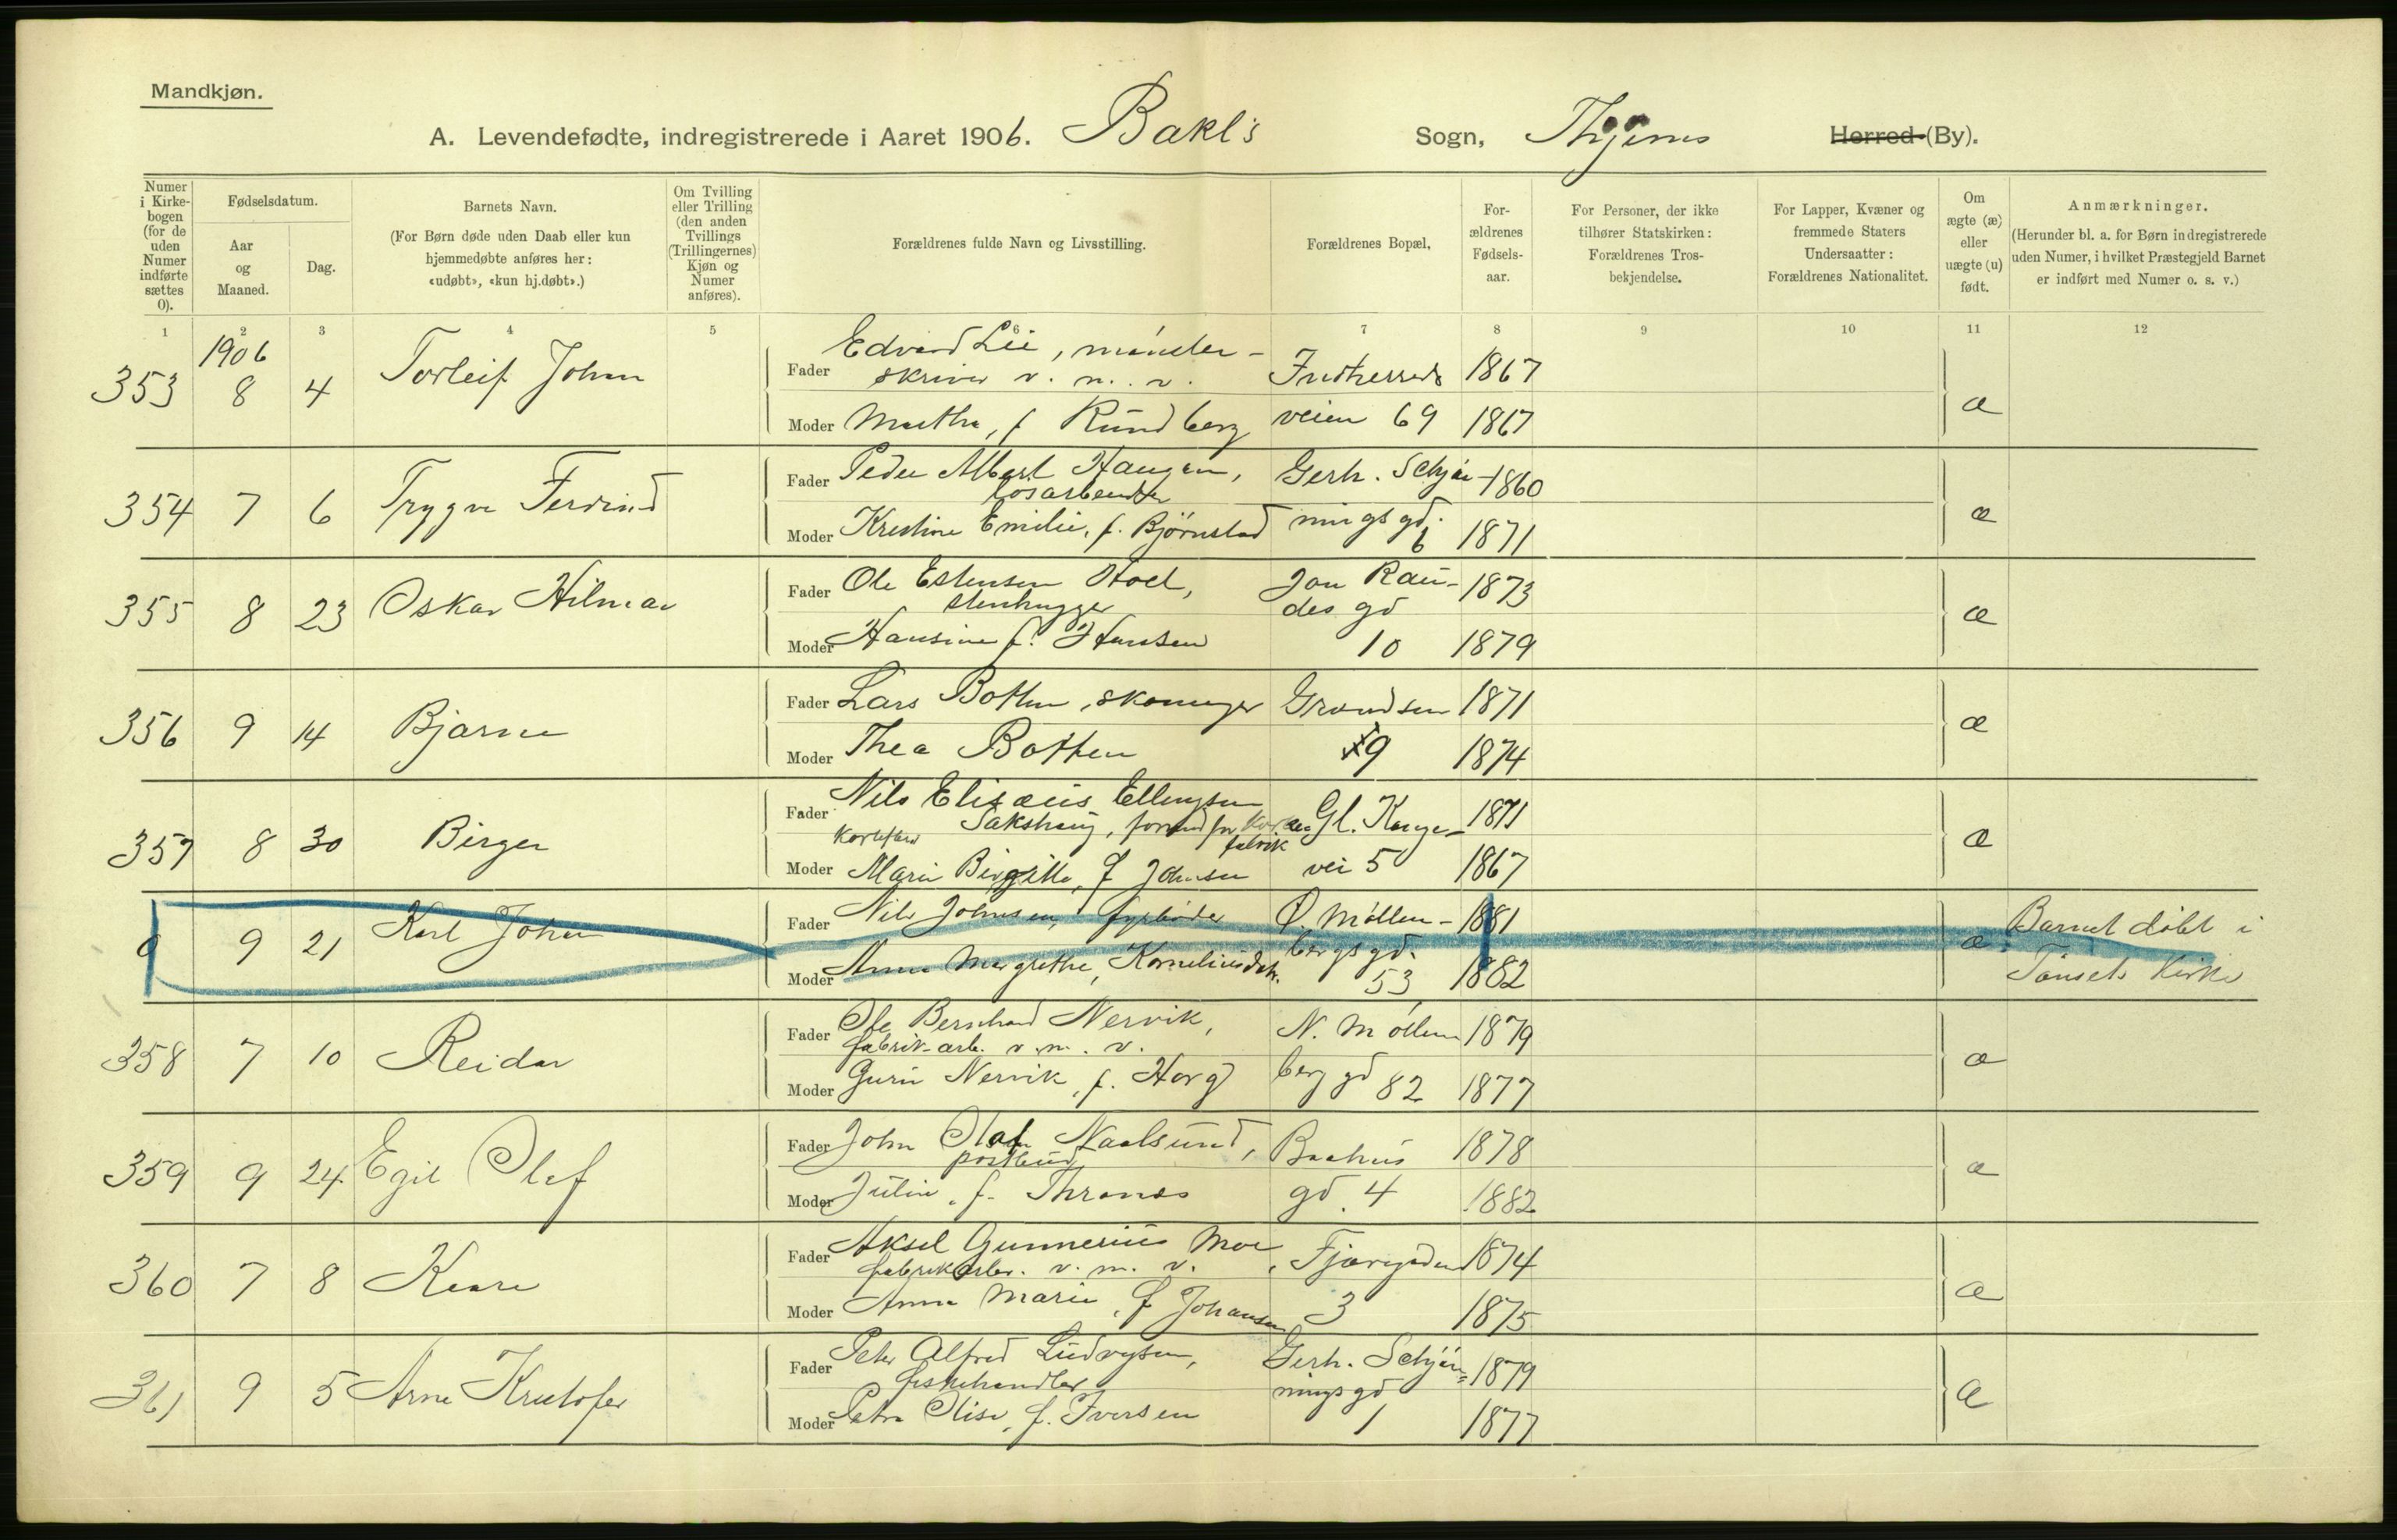 Mandkjøn.
A. Levendefødte, indregistrerede i Aaret 1906. Bakl's Sogn, Thjems Herred (By).
Numer i Kirkebogen (for de uden Numer indførte sættes 0).
Fødselsdatum.
Aar og Maaned.
Dag.
Barnets Navn.
(For Børn døde uden Daab eller kun hjemmedøbte anføres her: «udøbt», «kun hj.døbt».)
Om Tvilling eller Trilling (den anden Tvillings (Trillingernes) Kjøn og Numer anføres).
Forældrenes fulde Navn og Livsstilling.
Forældrenes Bopæl,
Forældrenes Fødselsaar.
For Personer, der ikke tilhører Statskirken: Forældrenes Trosbekjendelse.
For Lapper, Kvæner og fremmede Staters Undersaatter: Forældrenes Nationalitet.
Om ægte (æ) eller uægte (u) født.
Anmærkninger.
(Herunder bl. a. for Børn indregistrerede uden Numer, i hvilket Præstegjeld Barnet er indført med Numer o. s. v.)
1 2 3 4 5 6 7 8 9 10 11 12
1906
353 8 4 Torleif Johan Fader Edvard Lie, mønster-
skriver v. m. v. Indherreds 1867
Moder Marthe, f Rundberg veien 69 1867 æ
354 7 6 Trygve Ferdinand Fader Peder Albert Haugen, Gerh. Schjøn- 1860
løsarbeider
Moder Kristine Emilie, f. Bjørnstad ningsgd. 6 1871 æ
355 8 23 Oskar Hilmar Fader Ole Estensen Hoel, Jon Rau- 1873
stenhugger des gd
Moder Hansine f. Hansen 10 1879 æ
356 9 14 Bjarne Fader Lars Botten, skomager Grandsen 1871
Moder Thea Botten 9 1874 æ
357 8 30 Birger Fader Nils Elisæus Ellingsen Gl. Konge- 1871
Sakshaug, fabrik
Moder Marie Birgitte, f Johnsen vei 5 1867 æ
0 9 21 Karl Johan Fader Nils Johnsen, fyrbøder Ø. Møllen- 1881 Barnet døbt i
Moder Anna Margrethe, Korneliusdtr. bergsgd. 53 1882 æ Tønsets Kirke
358 7 10 Reidar Fader Ole Bernhard Nervik, N. Møllen 1879
fabrik-arb. v. m. v.
Moder Guru Nervik, f. Horg berg gd 82 1877 æ
359 9 24 Egil Olaf Fader John Olaf Naalsund, Baahus 1878
postbud
Moder Julie, f. Thranes gd. 4 1882 æ
360 7 8 Kaare Fader Aksel Gunnerius Moe, Fjæregaden 1874
fabrikarb. v. m. v.
Moder Anna Marie, f Johansen 3 1875 æ
361 9 5 Arne Kristofer Fader Peter Alfred Ludvigsen, Gerh. Schjøn= 1879
fiskehandler ningsgd
Moder Petra Elise, f. Iversen 1 1877 æ